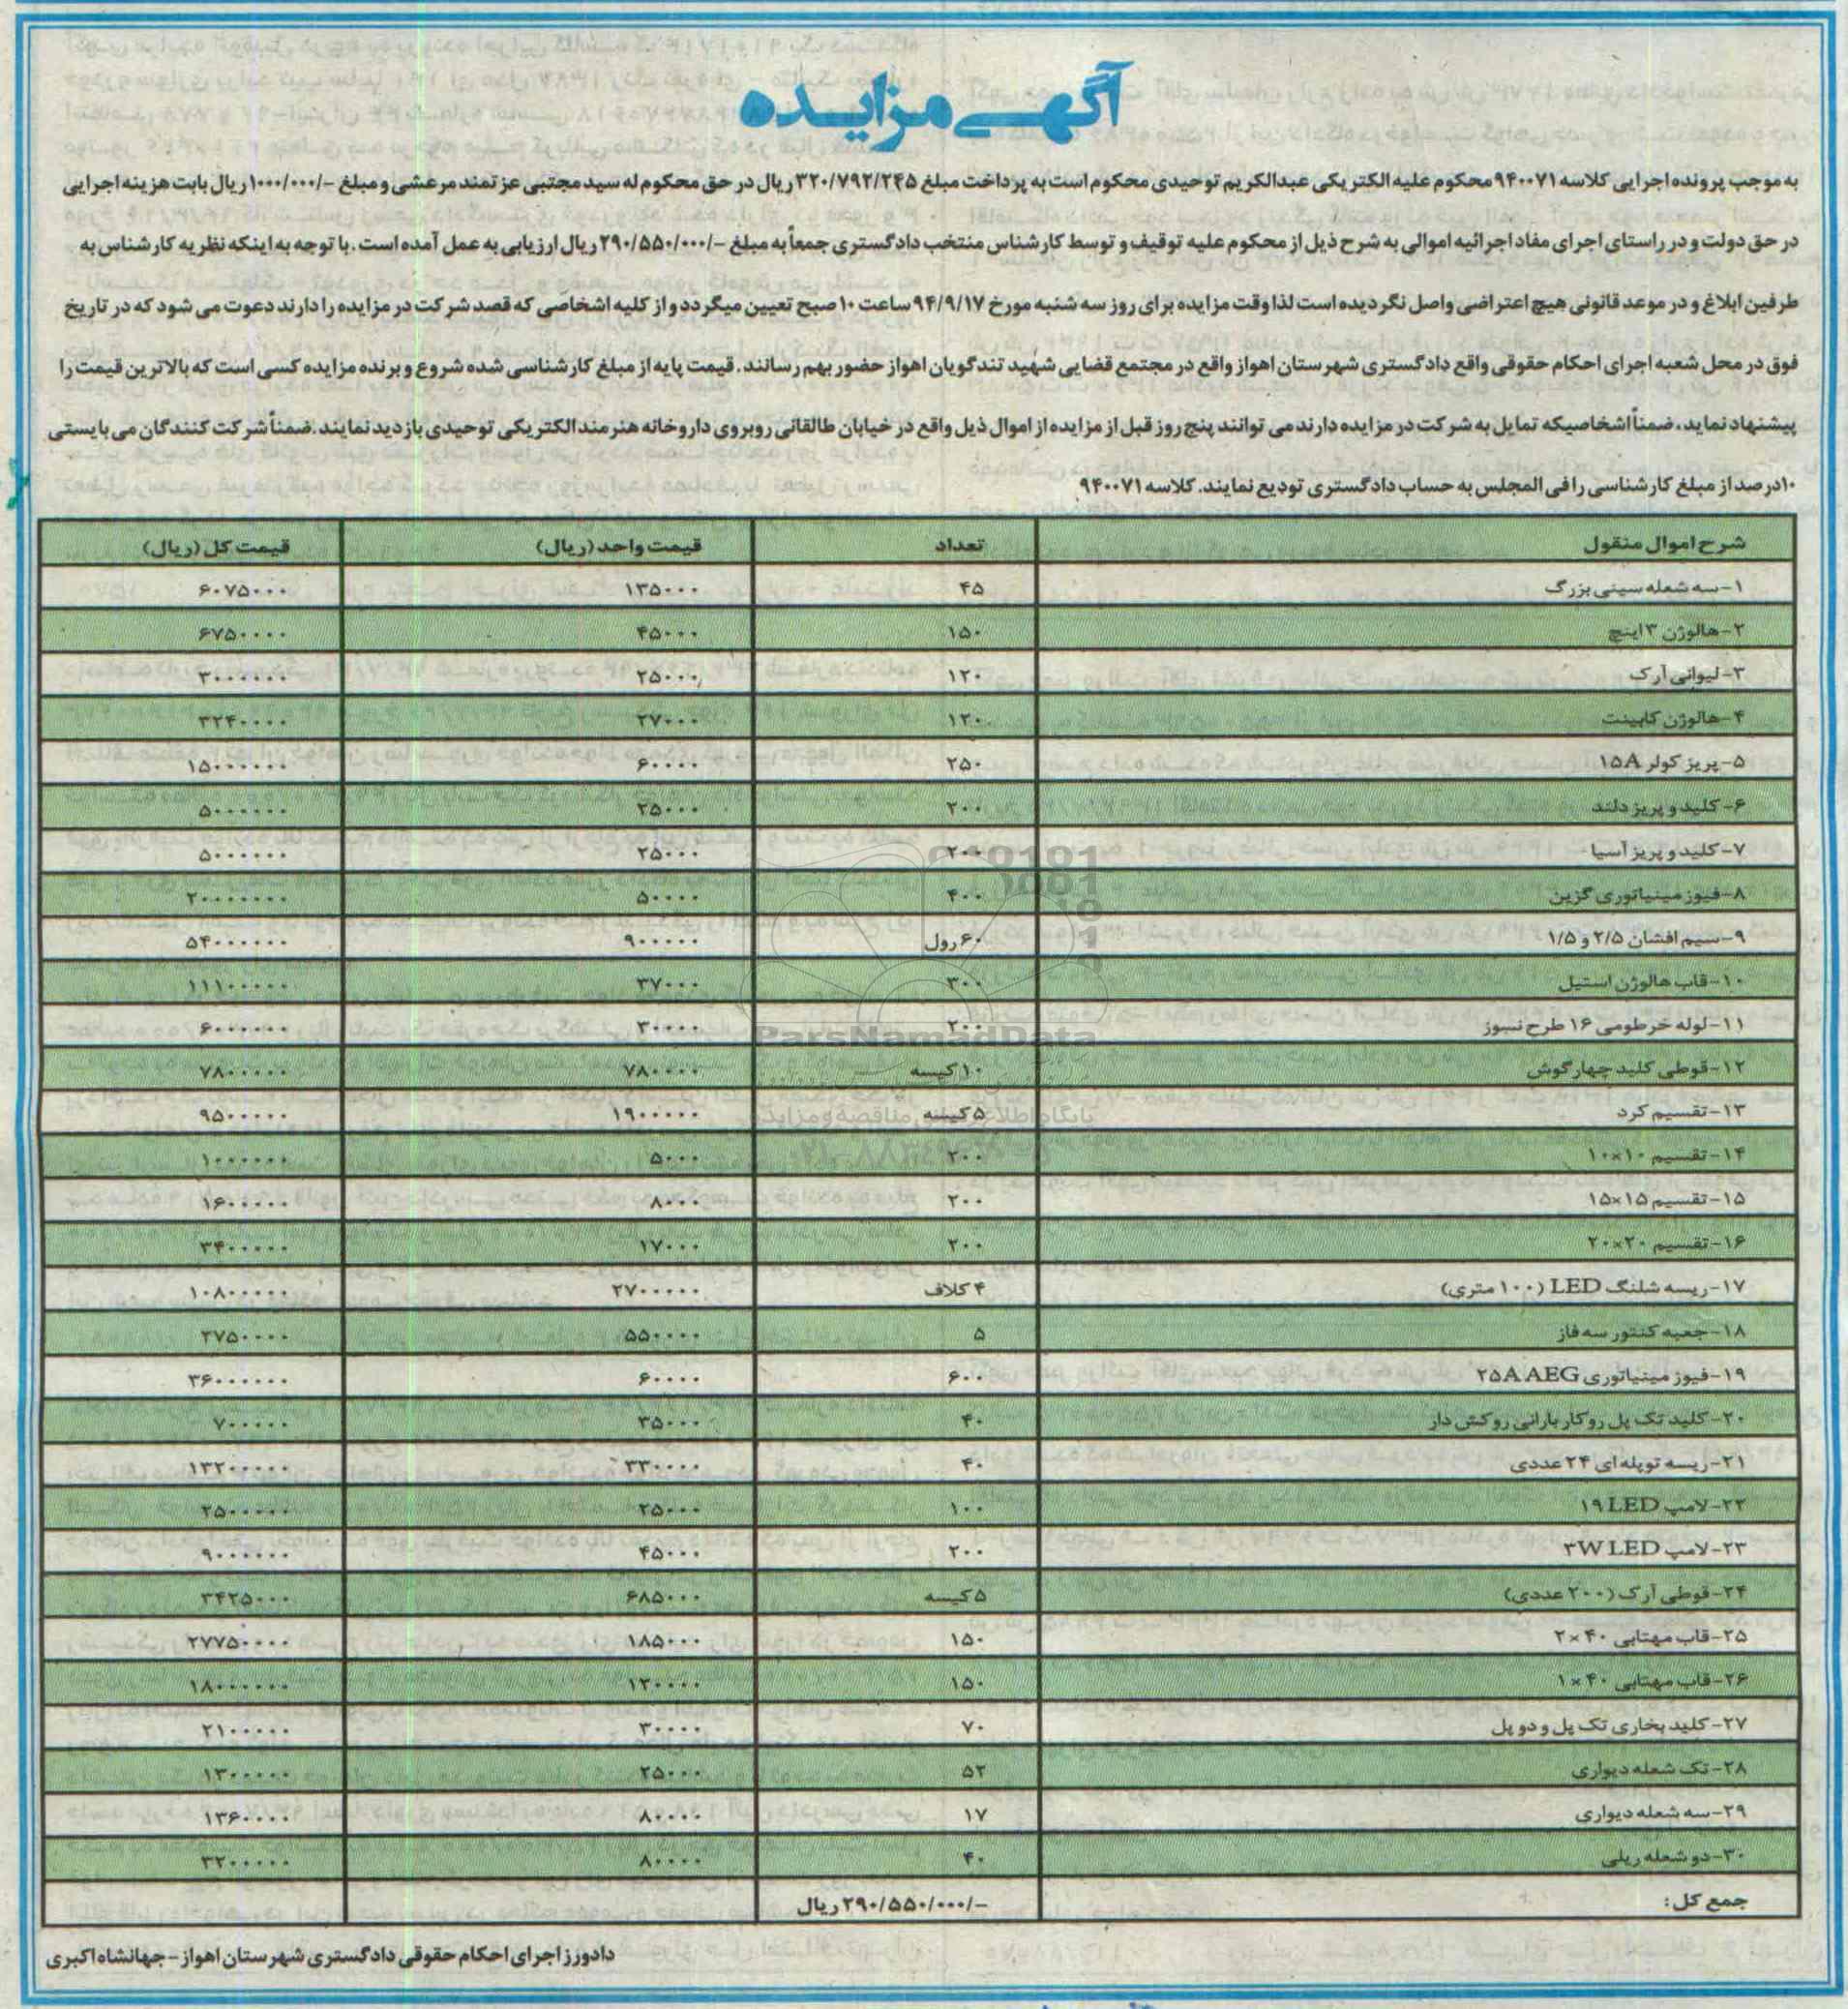 آگهی مزایده
به موجب پرونده اجرایی کلاسه ۹۴۰۰۷۱ محکوم علیه الکتریکی عبدالکریم توحیدی محکوم است به پرداخت مبلغ ۳۲۰/۷۹۲/۲۴۵ ریال در حق محکوم له سید مجتبی عزتمند مرعشی و مبلغ -/۱۰۰۰/۰۰۰ ریال بابت هزینه اجرایی
در حق دولت و در راستای اجرای مفاد اجرائیه اموالی به شرح ذیل از محکوم علیه توقیف و توسط کارشناس منتخب دادگستری جمعاً به مبلغ -/۲۹۰/۵۵۰/۰۰۰ ریال ارزیابی به عمل آمده است. با توجه به اینکه نظریه کارشناس به
طرفین ابلاغ و در موعد قانونی هیچ اعتراضی واصل نگردیده است لذا وقت مزایده برای روز سه شنبه مورخ ۹۴/۹/۱۷ ساعت ۱۰ صبح تعیین میگردد و از کلیه اشخاصی که قصد شرکت در مزایده را دارند دعوت می شود که در تاریخ
فوق در محل شعبه اجرای احکام حقوقی واقع دادگستری شهرستان اهواز واقع در مجتمع قضایی شهید تندگویان اهواز حضور بهم رسانند. قیمت پایه از مبلغ کارشناسی شده شروع و برنده مزایده کسی است که بالاترین قیمت را
پیشنهاد نماید. ضمناً اشخاصیکه تمایل به شرکت در مزایده دارند می توانند پنج روز قبل از مزایده از اموال ذیل واقع در خیابان طالقانی روبروی داروخانه هنرمند الکتریکی توحیدی بازدید نمایند. ضمناً شرکت کنندگان می بایستی
۱۰درصد از مبلغ کارشناسی را فی المجلس به حساب دادگستری تودیع نمایند. کلاسه ۹۴۰۰۷۱
شرح اموال منقول تعداد قیمت واحد (ریال) قیمت کل (ریال)
۱-سه شعله سینی بزرگ ۴۵ ۱۳۵۰۰۰ ۶۰۷۵۰۰۰
۲-هالوژن ۳ اینچ ۱۵۰ ۴۵۰۰۰ ۶۷۵۰۰۰۰
۳-لیوانی آرک ۱۲۰ ۲۵۰۰۰ ۳۰۰۰۰۰۰
۴-هالوژن کابینت ۱۲۰ ۲۷۰۰۰ ۳۲۴۰۰۰۰
۵-پریز کولر ۱۵A ۲۵۰ ۶۰۰۰۰ ۱۵۰۰۰۰۰۰
۶-کلید و پریز دلند ۲۰۰ ۲۵۰۰۰ ۵۰۰۰۰۰۰
۷-کلید و پریز آسیا ۲۰۰ ۲۵۰۰۰ ۵۰۰۰۰۰۰
۸-فیوز مینیاتوری گزین ۴۰۰ ۵۰۰۰۰ ۲۰۰۰۰۰۰۰
۹-سیم افشان ۲/۵ و ۱/۵ ۶۰ رول ۹۰۰۰۰۰ ۵۴۰۰۰۰۰۰
۱۰-قاب هالوژن استیل ۳۰۰ ۳۷۰۰۰ ۱۱۱۰۰۰۰۰
۱۱-لوله خرطومی ۱۶ طرح نسوز ۲۰۰ ۳۰۰۰۰ ۶۰۰۰۰۰۰
۱۲-قوطی کلید چهارگوش ۱۰ کیسه ۷۸۰۰۰۰ ۷۸۰۰۰۰۰
۱۳-تقسیم گرد ۵ کیسه ۱۹۰۰۰۰۰ ۹۵۰۰۰۰۰
۱۴-تقسیم ۱۰×۱۰ ۲۰۰ ۵۰۰۰ ۱۰۰۰۰۰۰
۱۵-تقسیم ۱۵×۱۵ ۲۰۰ ۸۰۰۰ ۱۶۰۰۰۰۰
۱۶-تقسیم ۲۰×۲۰ ۲۰۰ ۱۷۰۰۰ ۳۴۰۰۰۰۰
۱۷-ریسه شلنگ LED (۱۰۰ متری) ۴ کلاف ۲۷۰۰۰۰۰ ۱۰۸۰۰۰۰۰
۱۸-جعبه کنتور سه فاز ۵ ۵۵۰۰۰۰ ۲۷۵۰۰۰۰
۱۹-فیوز مینیاتوری ۲۵A AEG ۶۰۰ ۶۰۰۰۰ ۳۶۰۰۰۰۰۰
۲۰-کلید تک پل روکار بارانی روکش دار ۲۰ ۳۵۰۰۰ ۷۰۰۰۰۰
۲۱-ریسه توپله ای ۲۴ عددی ۴۰ ۳۳۰۰۰۰ ۱۳۲۰۰۰۰۰
۲۲-لامپ ۱۹LED ۱۰۰ ۲۵۰۰۰ ۲۵۰۰۰۰۰
۲۳-لامپ ۳W LED ۲۰۰ ۴۵۰۰۰ ۹۰۰۰۰۰۰
۲۴-قوطی آرک (۲۰۰ عددی) ۵ کیسه ۶۸۵۰۰۰ ۳۴۲۵۰۰۰
۲۵-قاب مهتابی ۴۰×۲ ۱۵۰ ۱۸۵۰۰۰ ۲۷۷۵۰۰۰۰
۲۶-قاب مهتابی ۴۰×۱ ۱۵۰ ۱۲۰۰۰۰ ۱۸۰۰۰۰۰۰
۲۷-کلید بخاری تک پل و دو پل ۷۰ ۳۰۰۰۰ ۲۱۰۰۰۰۰
۲۸-تک شعله دیواری ۵۲ ۲۵۰۰۰ ۱۳۰۰۰۰۰
۲۹-سه شعله دیواری ۱۷ ۸۰۰۰۰ ۱۳۶۰۰۰۰
۳۰-دو شعله ریلی ۴۰ ۸۰۰۰۰ ۳۲۰۰۰۰۰
جمع کل: -/۲۹۰/۵۵۰/۰۰۰ ریال
دادورز اجرای احکام حقوقی دادگستری شهرستان اهواز - جهانشاه اکبری
ParsNamadData